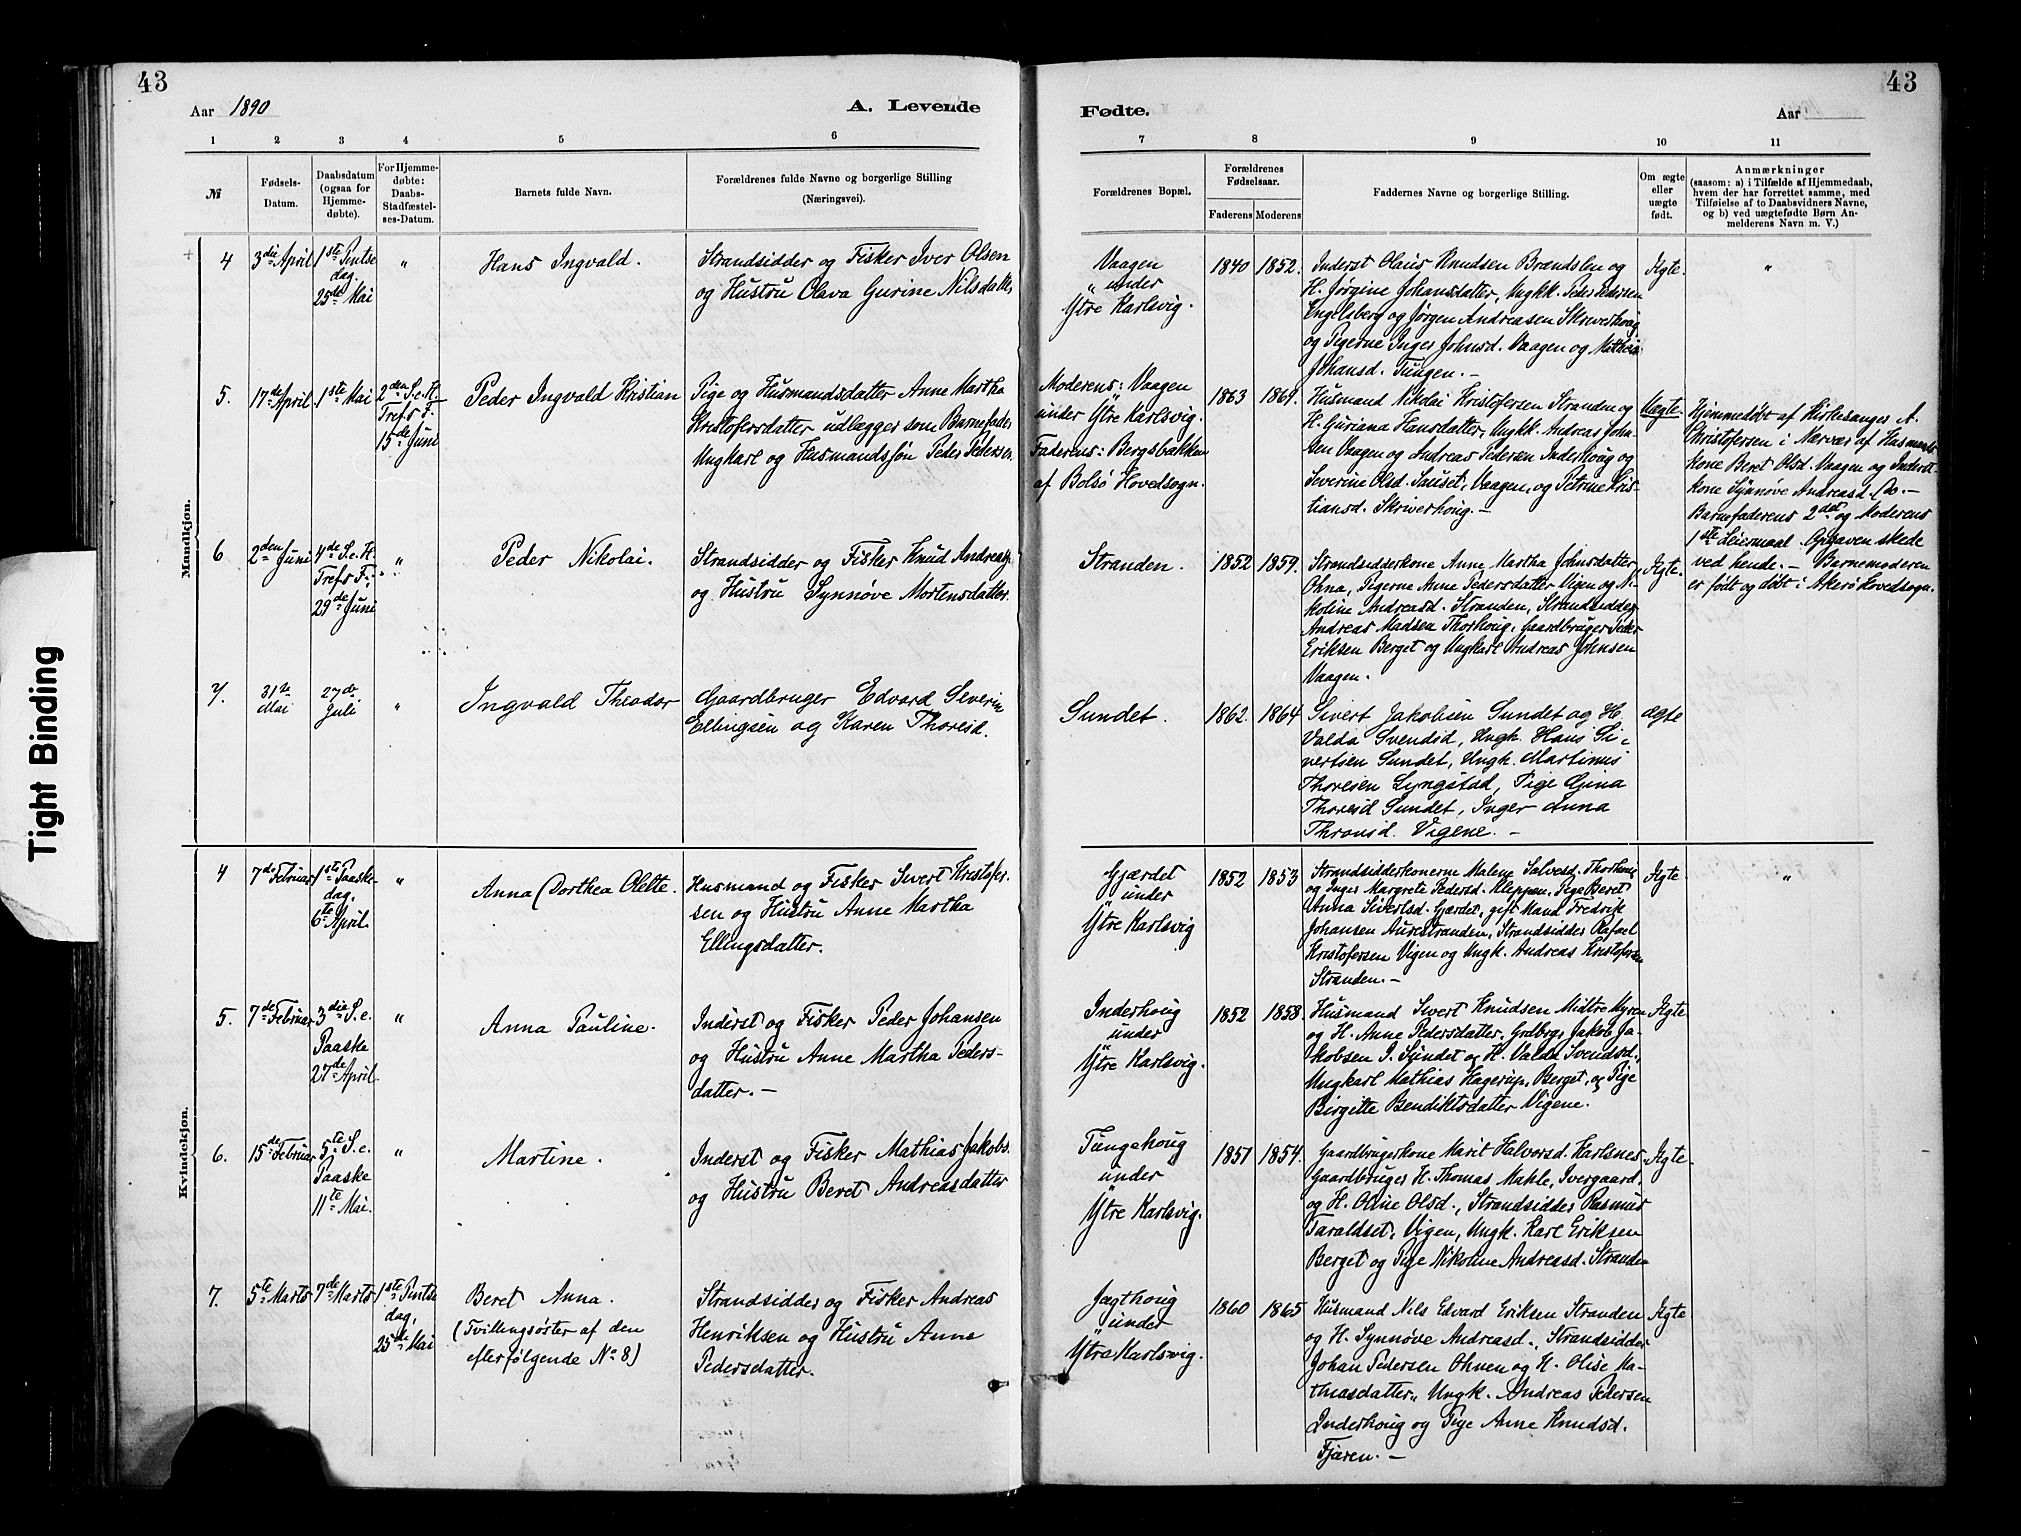 43
Aar 1890
A. Levende
1 2 3 4 5 6
№
Fødsels-
Datum.
Daabsdatum
(ogsaa for
Hjemme-
døbte).
For Hjemme-
døbte:
Daabs-
Stadfæstel-
ses-Datum.
Barnets fulde Navn.
Forældrenes fulde Navne og borgerlige Stilling
(Næringsvei).
Mandkjøn.
4
3die April
1ste Pintse
dag.
25de Mai
"
Hans Ingvald.
Strandsidder og Fisker Iver Olsen
og Hustru Olava Gurine Nilsdatter
5.
17de April
1ste Mai
2den S. e. H.
Tref's F.
15de Juni
Peder Ingvald Kristian
Pige og Husmandsdatter Anne Martha
Kristofersdatter udlægger som Barnefader
Ungkarl og Husmandssøn Peder Pedersen.
6
2den Juni
4de S. e. H.
Tref's F.
29de Juni
"
Peder Nikolai.
Strandsidder og Fisker Knud Andreas.
og Hustru Synnøve Mortensdatter.
7.
31te
Mai
27de
Juli
"
Ingvald Theodor
Gaardbruger Edvard Severin
Ellingsen og Karen Thoresd.
Kvindekjøn.
4
7de Februar
1ste Paaske-
dag.
6te April.
"
Anna Dorthea Olette.
Husmand og Fisker Sivert Kristofer-
sen og Hustru Anne Martha
Ellingsdatter.
5.
7de Februar
3die S. e.
Paaske
27de April.
"
Anna Pauline.
Inderst og Fisker Peder Johansen
og Hustru Anne Martha Peders-
datter. –
6.
15de Februar
5te S. e.
Paaske
11te Mai.
"
Martine.
Inderst og Fisker Mathias Jakobs.
og Hustru Beret Andreasdatter
7.
5te Marts
7de Marts
1ste Pintse
dag,
25de Mai
Beret Anna.
(Tvillingsøster af den
efterfølgende No 8)
Strandsidder og Fisker Andreas
Henriksen og Hustru Anne
Pedersdatter.
Tight Binding
43
Fødte.
Aar
7 8 9 10 11
Forældrenes Bopæl.
Forældrenes
Fødselsaar.
Faderens Moderens
Faddernes Navne og borgerlige Stilling.
Om ægte
eller
uægte
født.
Anmærkninger
(saasom: a) i Tilfælde af Hjemmedaab,
hvem der har forrettet samme, med
Tilføielse af to Daabsvidners Navne,
og b) ved uægtefødte Børn An-
melderens Navn m. V.)
Vaagen
under
Ytre Karlsvig.
1840 1852.
Inderst Olaus Knudsen Brændslen og
H. Jørgine Johansdatter, Ungk. Peder Pedersen
Engelsberg og Jørgen Andreasen Skriverhoug
og Pigerne Inger Johnsd. Vaagen og
Johansd. Tungen. –
Ægte.
"
Moderens: Vaagen
under Ytre Karlsvig.
Faderens: Bergsbakken
af Bolsø Hovedsogn.
1863 1869.
Husmand Nikolai Kristofersen Stranden og
H. Guriana Hansdatter, Ungk. Andreas John-
sen Vaagen og Andreas Pedersen Inderhoug og
Severine Olsd. Sauset, Vaagen, og Petrine Kris-
tiansd. Skriverhoug. –
Uægte.
Hjemmedøbt af Kirkesanger A.
Christofersen i Nærvær af Husmands-
kone Beret Olsd. Vaagen og Inderst-
kone Synnøve Andreasd. Do. –
Barnefaderens 2det og Moderens
1ste Leiermaal. Opgaven skede
ved hende. – Barnemoderen
er født og døbt i Akerø Hovedsogn.
Stranden.
1852 1859.
Strandsidderkone Anne Martha Johnsdatter
Ohna, Pigerne Anne Pedersdatter Vigen og Ni-
koline Andreasd. Stranden, Strandsidder
Andreas Madsen Thorhoug, Gaardbruger Peder
Eriksen Berget og Ungkarl Andreas Johnsen
Vaagen.
Ægte.
Sundet.
1862. 1864
Sivert Jakobsen Sundet og H.
Valda Svendsd, Ungk. Hans Si-
vertsen Sundet, Ungk. Martinus
Thoresen Lyngstad, Pige Gina
Thoresd Sundet, Inger Anna
Thronsd. Vigene. –
ægte
Gjærdet
under
Ytre Karlsvig
1852 1853
Strandsidderkonerne Malene Salvesd. Thorhoug
og Inger Margrete Pedersd. Kleppen, Pige Beret
Anna Sivertsd. Gjærdet, gift Mand Fredrik
Johansen Aurestranden, Strandsidder Rafael
Kristofersen Vigen og Ungk. Andreas Kristofersen
Stranden. –
Ægte.
"
Inderhoug
under
Ytre Karlsvig.
1852 1858.
Husmand Sivert Knudsen Midtre Myren
og H. Anne Pedersdatter, Grdbrgr Jakob Ja-
kobsen I. Sundet og H. Valda Svendsd.,
Ungkarl Mathias Hagerup, Berget, og Pige
Birgitte Bendiktsdatter Vigene.
Ægte
Tungehoug
under
Ytre Karlsvig.
1857 1854.
Gaardbrugerkone Marit Halvorsd. Karlsnes
Gaardbruger H. Thomas Mahle, Ivergaard,
og H. Oline Olsd., Strandsidder Rasmus
Taraldset, Vigen, Ungk. Karl Eriksen
Berget og Pige Nikoline Andreasd. Stranden
Ægte
Jægthoug
under
Ytre Karlsvig.
1860 1865
Husmand Nils Edvard Eriksen Stranden
og H. Synnøve Andreasd., Strandsidder
Johan Pedersen Ohnen og H. Olise Ma-
thiasdatter, Ungk. Andreas Pedersen
Inderhoug og Pige Anne Knudsd.
Fjæren. –
Ægte